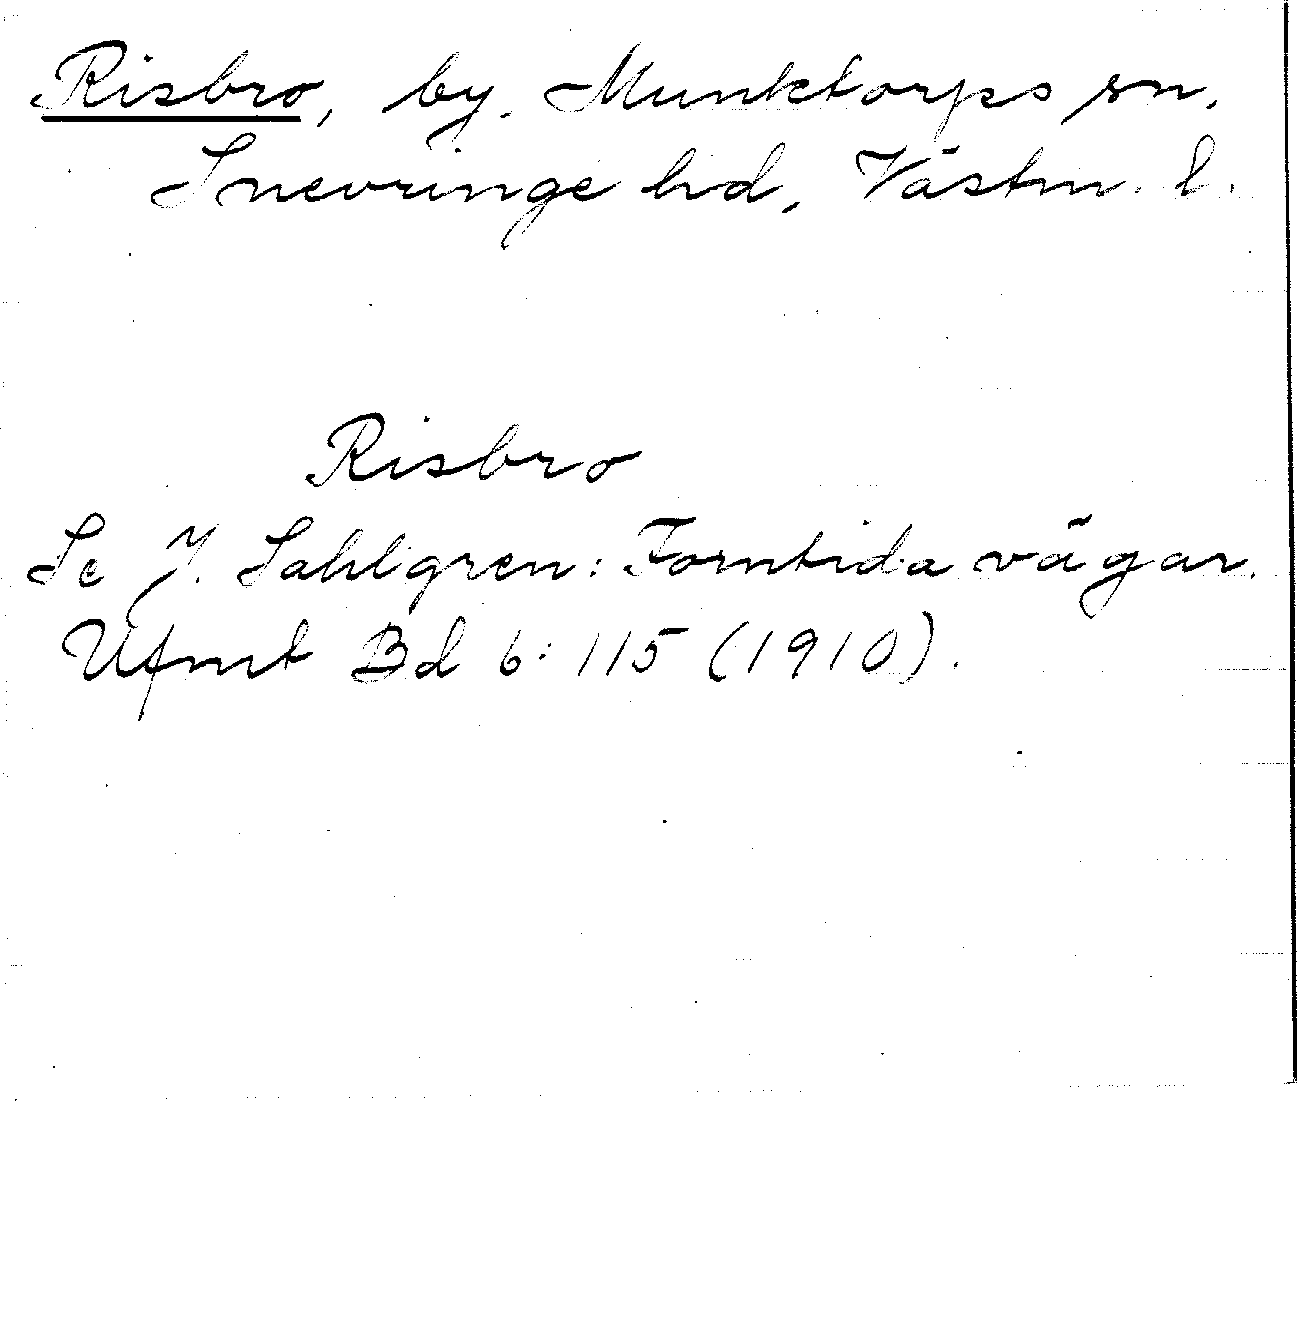 Risbro, by. Munktorps sn.
Snevringe hd, Västm. l.
Risbro
Se J. Sahlgren: Forntida vägar.
Ufmt Bd 6:115 (1910).